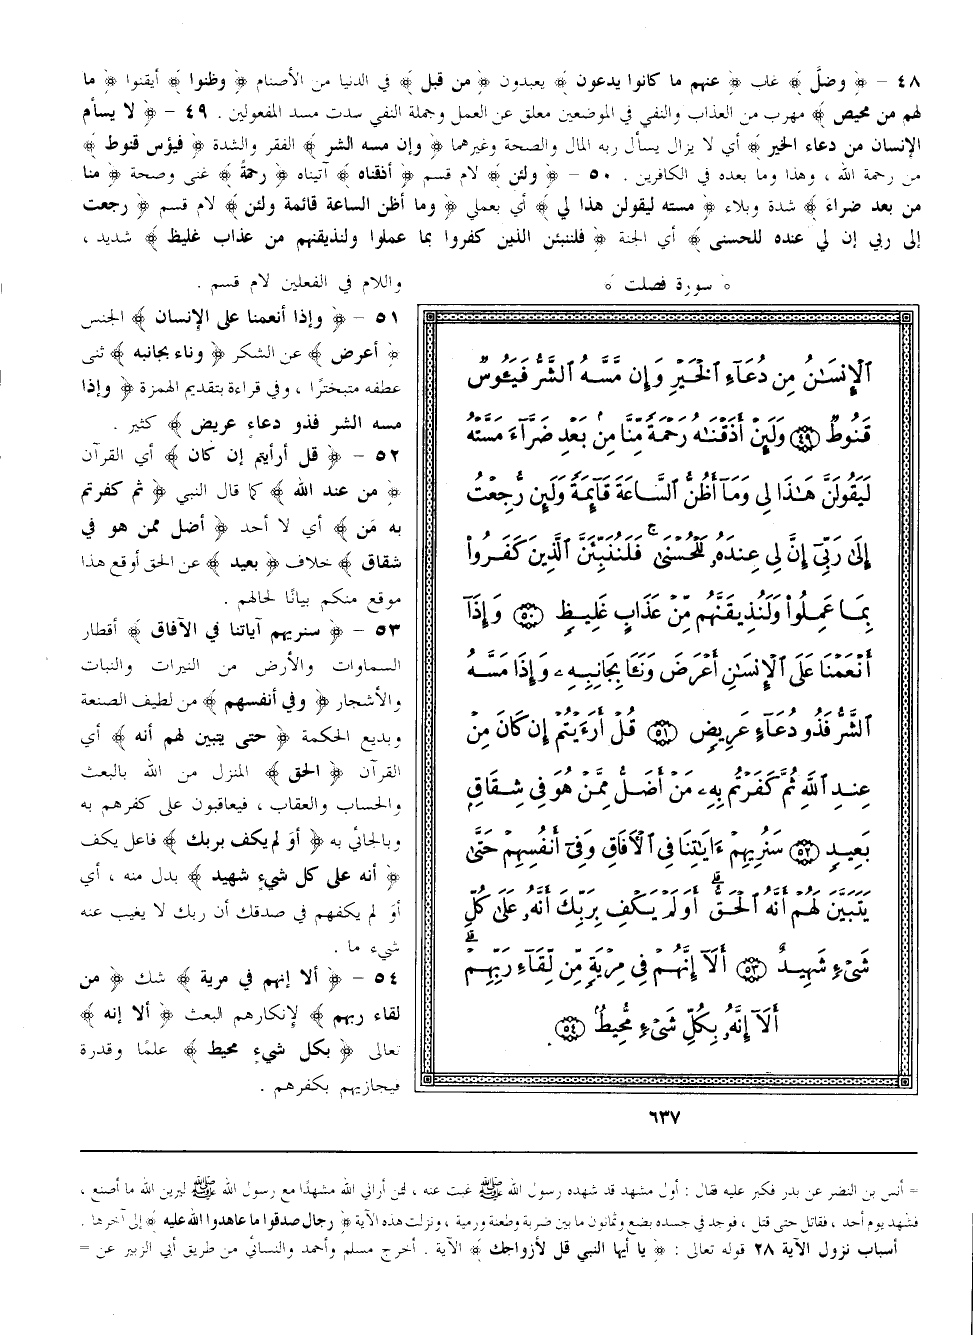 ٤٨ - ﴿ وضلَّ ﴾ غاب ﴿ عنهم ما كانوا يدعون ﴾ يعبدون ﴿ من قبل ﴾ في الدنيا من الأصنام ﴿ وظنوا ﴾ أيقنوا ﴿ ما
لهم من محيص ﴾ مهرب من العذاب والنفي في الموضعين معلق عن العمل وجملة النفي سدت مسد المفعولين . ٤٩ - ﴿ لا يسأم
الإنسان من دعاء الخير ﴾ أي لا يزال يسأل ربه المال والصحة وغيرهما ﴿ وإن مسه الشر ﴾ الفقر والشدة ﴿ فيؤس قنوط ﴾
من رحمة الله ، وهذا وما بعده في الكافرين . ٥٠ - ﴿ ولئن ﴾ لام قسم ﴿ أذقناه ﴾ آتيناه ﴿ رحمةً ﴾ غنى وصحة ﴿ منا
من بعد ضراءَ ﴾ شدة وبلاء ﴿ مسته ليقولن هذا لي ﴾ أي بعملي ﴿ وما أظن الساعة قائمة ولئن ﴾ لام قسم ﴿ رجعت
إلى ربي إن لي عنده للحسنى ﴾ أي الجنة ﴿ فلننبئن الذين كفروا بما عملوا ولنذيقنهم من عذاب غليظ ﴾ شديد ،
واللام في الفعلين لام قسم .
٥١ - ﴿ وإذا أنعمنا على الإنسان ﴾ الجنس
﴿ أعرض ﴾ عن الشكر ﴿ وناء بجانبه ﴾ ثنى
عطفه متبخترًا ، وفي قراءة بتقديم الهمزة ﴿ وإذا
مسه الشر فذو دعاءٍ عريض ﴾ كثير .
٥٢ - ﴿ قل أرأيتم إن كان ﴾ أي القرآن
﴿ من عند الله ﴾ كما قال النبي ﴿ ثم كفرتم
به مَن ﴾ أي لا أحد ﴿ أضل ممن هو في
شقاق ﴾ خلاف ﴿ بعيد ﴾ عن الحق أوقع هذا
موقع منكم بيانًا لحالهم .
٥٣ - ﴿ سنريهم آياتنا في الآفاق ﴾ أقطار
السماوات والأرض من النيرات والنبات
والأشجار ﴿ وفي أنفسهم ﴾ من لطيف الصنعة
وبديع الحكمة ﴿ حتى يتبين لهم أنه ﴾ أي
القرآن ﴿ الحق ﴾ المنزل من الله بالبعث
والحساب والعقاب ، فيعاقبون على كفرهم به
وبالجائي به ﴿ أوَ لم يكف بربك ﴾ فاعل يكف
﴿ أنه على كل شيءٍ شهيد ﴾ بدل منه ، أي
أوَ لم يكفهم في صدقك أن ربك لا يغيب عنه
شيء ما .
٥٤ - ﴿ ألا إنهم في مرية ﴾ شك ﴿ من
لقاء ربهم ﴾ لإنكارهم البعث ﴿ ألا إنه ﴾
تعالى ﴿ بكل شيءٍ محيط ﴾ علمًا وقدرة
فيجازيهم بكفرهم .
﴿ سورة فصلت ﴾
ٱلْإِنسَٰنُ مِن دُعَآءِ ٱلْخَيْرِ وَإِن مَّسَّهُ ٱلشَّرُّ فَيَـُٔوسٌ
قَنُوطٌ ٤٩ وَلَئِنْ أَذَقْنَٰهُ رَحْمَةً مِّنَّا مِنۢ بَعْدِ ضَرَّآءَ مَسَّتْهُ
لَيَقُولَنَّ هَٰذَا لِى وَمَآ أَظُنُّ ٱلسَّاعَةَ قَآئِمَةً وَلَئِن رُّجِعْتُ
إِلَىٰ رَبِّىٓ إِنَّ لِى عِندَهُۥ لَلْحُسْنَىٰ ۚ فَلَنُنَبِّئَنَّ ٱلَّذِينَ كَفَرُوا۟
بِمَا عَمِلُوا۟ وَلَنُذِيقَنَّهُم مِّنْ عَذَابٍ غَلِيظٍ ٥٠ وَإِذَآ
أَنْعَمْنَا عَلَى ٱلْإِنسَٰنِ أَعْرَضَ وَنَـَٔا بِجَانِبِهِۦ وَإِذَا مَسَّهُ
ٱلشَّرُّ فَذُو دُعَآءٍ عَرِيضٍ ٥١ قُلْ أَرَءَيْتُمْ إِن كَانَ مِنْ
عِندِ ٱللَّهِ ثُمَّ كَفَرْتُم بِهِۦ مَنْ أَضَلُّ مِمَّنْ هُوَ فِى شِقَاقٍۭ
بَعِيدٍ ٥٢ سَنُرِيهِمْ ءَايَٰتِنَا فِى ٱلْءَافَاقِ وَفِىٓ أَنفُسِهِمْ حَتَّىٰ
يَتَبَيَّنَ لَهُمْ أَنَّهُ ٱلْحَقُّ ۗ أَوَلَمْ يَكْفِ بِرَبِّكَ أَنَّهُۥ عَلَىٰ كُلِّ
شَىْءٍ شَهِيدٌ ٥٣ أَلَآ إِنَّهُمْ فِى مِرْيَةٍ مِّن لِّقَآءِ رَبِّهِمْ ۗ
أَلَآ إِنَّهُۥ بِكُلِّ شَىْءٍ مُّحِيطٌۢ ٥٤
٦٣٧
= أنس بن النضر عن بدر فكبر عليه فقال : أول مشهد قد شهده رسول الله ﷺ غبت عنه ، لئن أراني الله مشهدًا مع رسول الله ﷺ ليرين الله ما أصنع ،
فشهد يوم أحد ، فقاتل حتى قتل ، فوجد في جسده بضع وثمانون ما بين ضربة وطعنة ورمية ، ونزلت هذه الآية ﴿ رجال صدقوا ما عاهدوا الله عليه ﴾ إلى آخرها .
أسباب نزول الآية ٢٨ قوله تعالى : ﴿ يا أيها النبي قل لأزواجك ﴾ الآية . أخرج مسلم وأحمد والنسائي من طريق أبي الزبير عن =